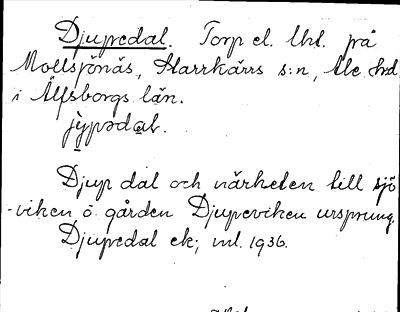 Djupedal. Torp el. lht. på
Mollsjönäs, Starrkärrs s:n, Ale hd
i Älfsborgs län.
jỳpədal.
Djup dal och närheten till sjö
-viken o gården Djupeviken ursprung.
Djupedal ek; ml. 1936.